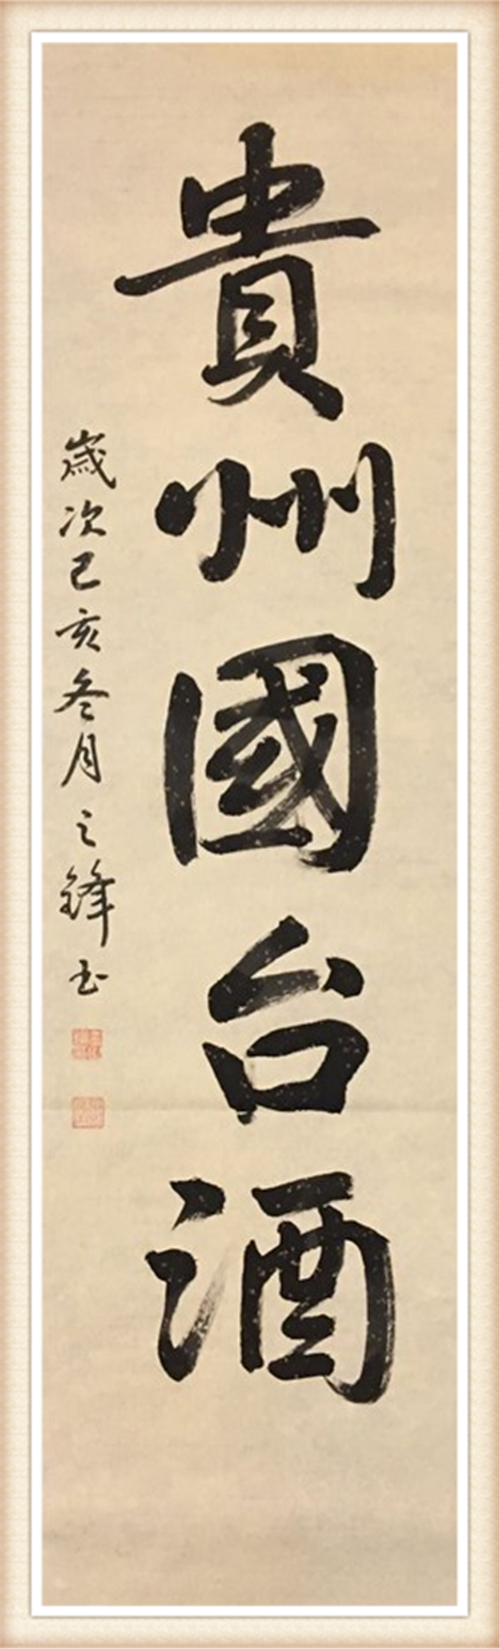 貴州國台酒
歲次己亥冬月之鋒书